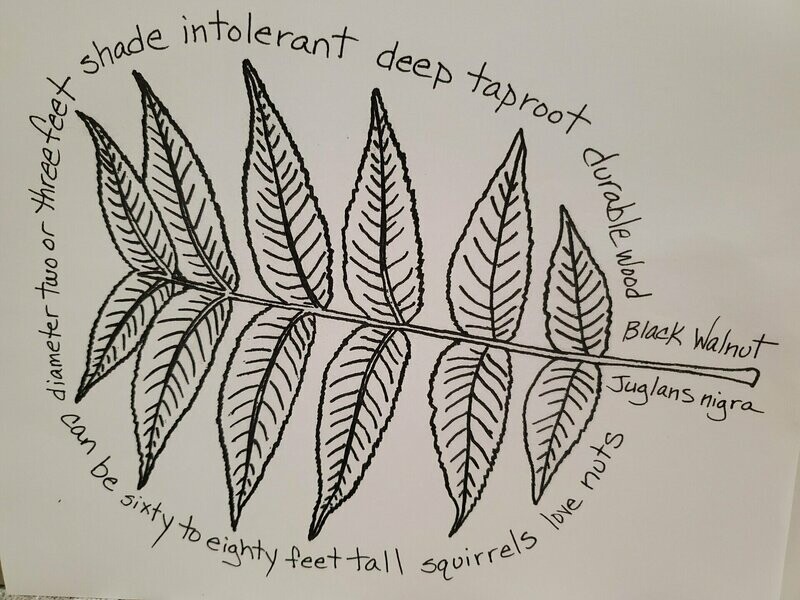 shade intolerant deep taproot durable wood
Black Walnut
Juglans nigra
diameter two or three feet
can be sixty to eighty feet tall squirrels love nuts